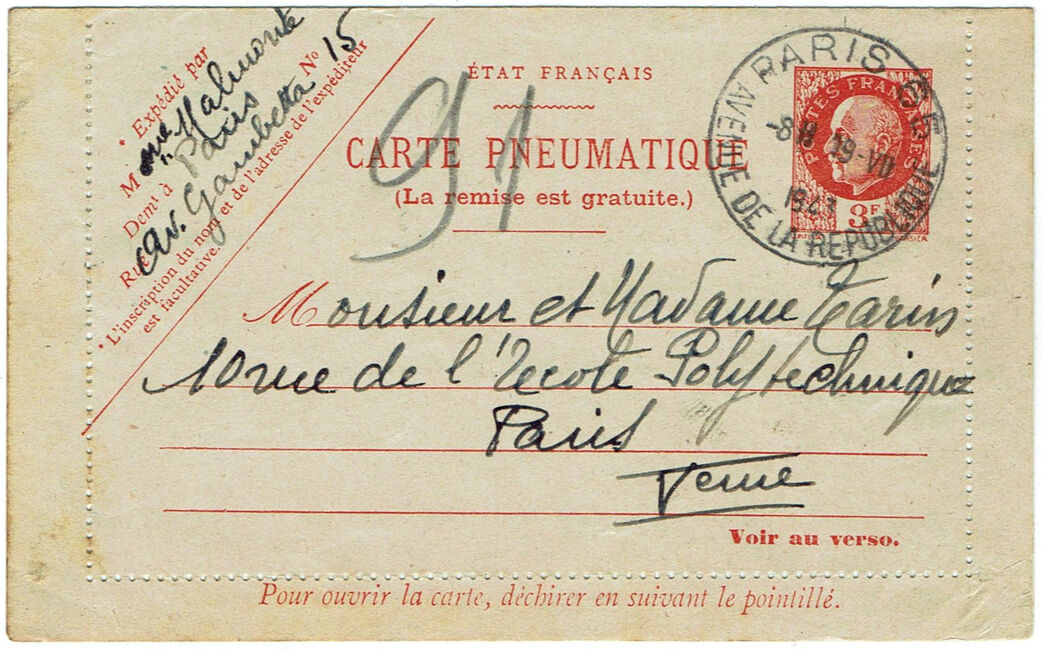 * Expédié par
Mme Malmonte
Demt à Paris
Rue av. Gambetta No 15
* L'inscription du nom et de l'adresse de l'expéditeur
est facultative.
ÉTAT FRANÇAIS
CARTE PNEUMATIQUE
(La remise est gratuite.)
91
PARIS
AVENUE DE LA REPUBLIQUE
1943
POSTES FRANÇAISES
3F
Monsieur et Madame Tarins
10 rue de l'Ecole Polytechnique
Paris
Veme
Voir au verso.
Pour ouvrir la carte, déchirer en suivant le pointillé.